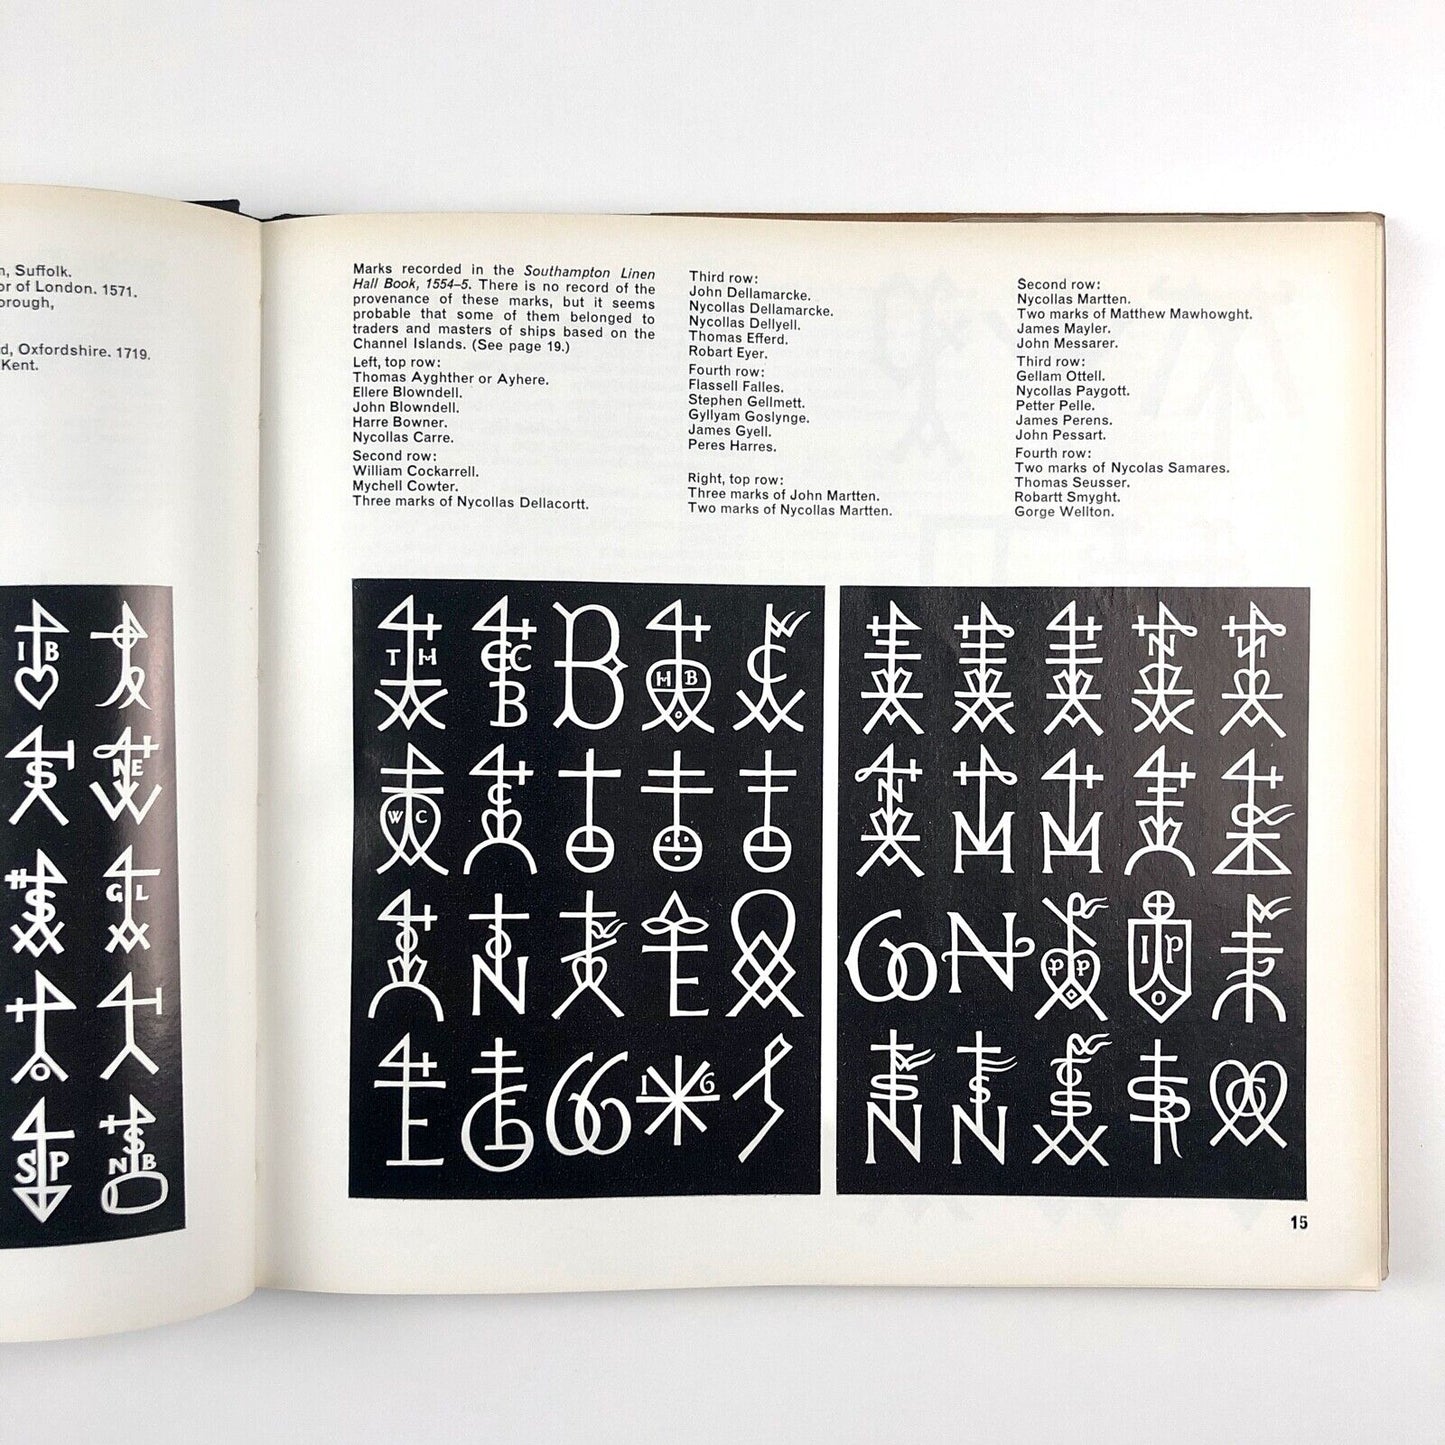 n, Suffolk.
or of London. 1571.
orough,
d, Oxfordshire. 1719.
Kent.
Marks recorded in the Southampton Linen
Hall Book, 1554–5. There is no record of the
provenance of these marks, but it seems
probable that some of them belonged to
traders and masters of ships based on the
Channel Islands. (See page 19.)
Left, top row:
Thomas Ayghther or Ayhere.
Ellere Blowndell.
John Blowndell.
Harre Bowner.
Nycollas Carre.
Second row:
William Cockarrell.
Mychell Cowter.
Three marks of Nycollas Dellacortt.
Third row:
John Dellamarcke.
Nycollas Dellamarcke.
Nycollas Dellyell.
Thomas Efferd.
Robart Eyer.
Fourth row:
Flassell Falles.
Stephen Gellmett.
Gyllyam Goslynge.
James Gyell.
Peres Harres.
Right, top row:
Three marks of John Martten.
Two marks of Nycollas Martten.
Second row:
Nycollas Martten.
Two marks of Matthew Mawhowght.
James Mayler.
John Messarer.
Third row:
Gellam Ottell.
Nycollas Paygott.
Petter Pelle.
James Perens.
John Pessart.
Fourth row:
Two marks of Nycolas Samares.
Thomas Seusser.
Robartt Smyght.
Gorge Wellton.
I B
S
NE W
S
G L
S P
S N B
T H
E C C B
B
H B
C
W C
C
N
E
E
G
1 6
N
N
N
M
M
N
P P
I P O
S N
S N
S
S R
15